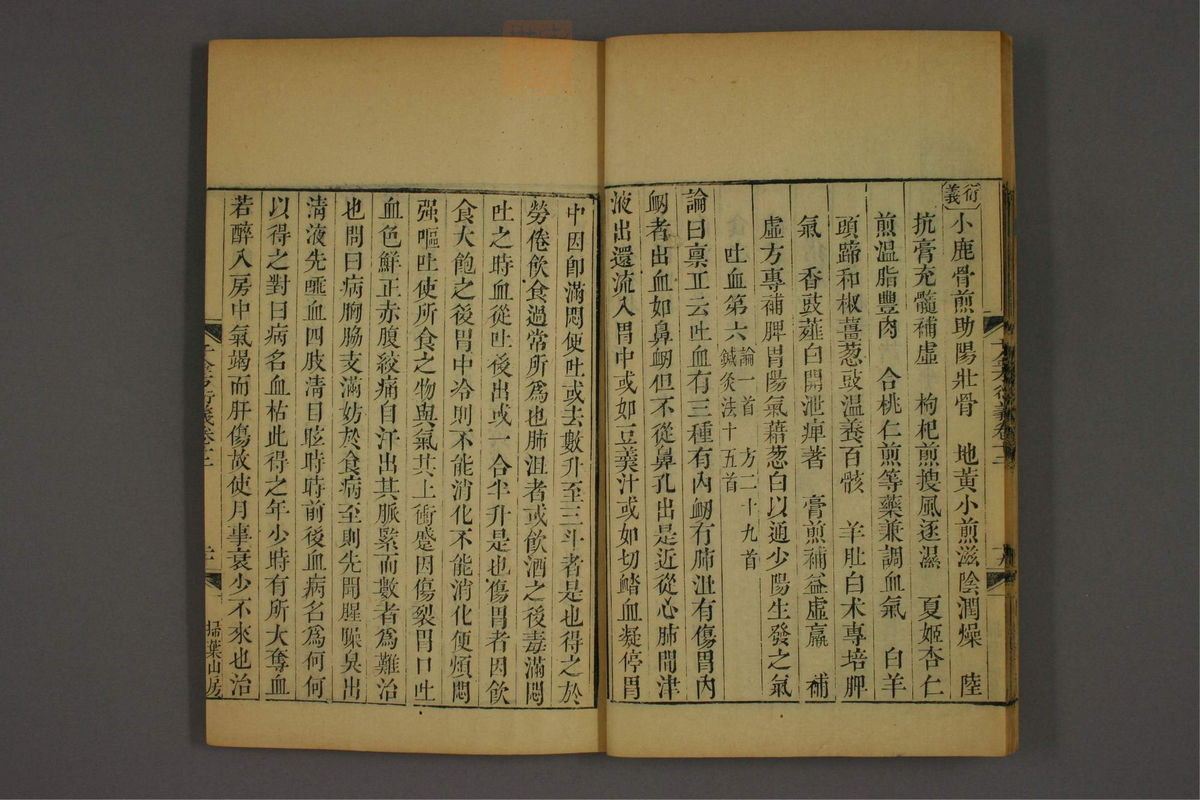 衍義 小鹿骨煎助陽壯骨 地黃小煎滋陰潤燥 陸
抗膏充髓補虛 枸杞煎搜風逐濕 夏姬杏仁
煎溫脂豐肉 合桃仁煎等藥兼調血氣 白羊
頭蹄和椒薑葱豉溫養百骸 羊肚白术專培脾
氣 香豉薤白開泄痺著 膏煎補益虛羸 補
虛方專補脾胃陽氣藉葱白以通少陽生發之氣
吐血第六 論一首 方二十九首
鍼灸法十五首
論曰稟丘云吐血有三種有內衄有肺疽有傷胃內
衄者出血如鼻衄但不從鼻孔出是近從心肺間津
液出還流入胃中或如豆羹汁或如切䐄血凝停胃
中因卽滿悶便吐或去數升至三斗者是也得之於
勞倦飲食過常所爲也肺沮者或飲酒之後毒滿悶
吐之時血從吐後出或一合半升是也傷胃者因飲
食大飽之後胃中冷則不能消化不能消化便煩悶
强嘔吐使所食之物與氣共上衝蹙因傷裂胃口吐
血色鮮正赤腹絞痛自汗出其脈緊而數者爲難治
也問曰病胸脇支滿妨於食病至則先聞腥臊臭出
清液先唾血四肢清目眩時時前後血病名爲何何
以得之對曰病名血枯此得之年少時有所大奪血
若醉入房中氣竭而肝傷故使月事衰少不來也治
千金方衍義卷十二
掃葉山房